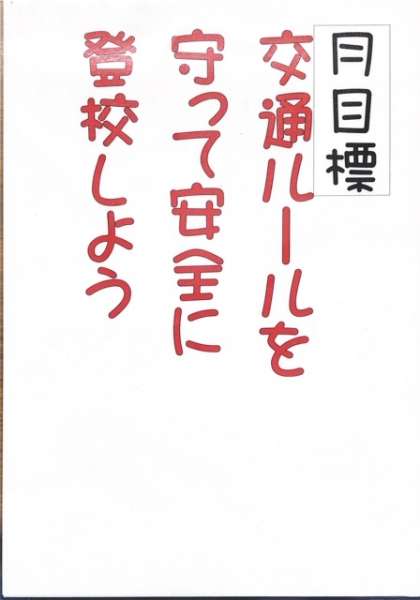 月目標
交通ルールを
守って安全に
登校しよう